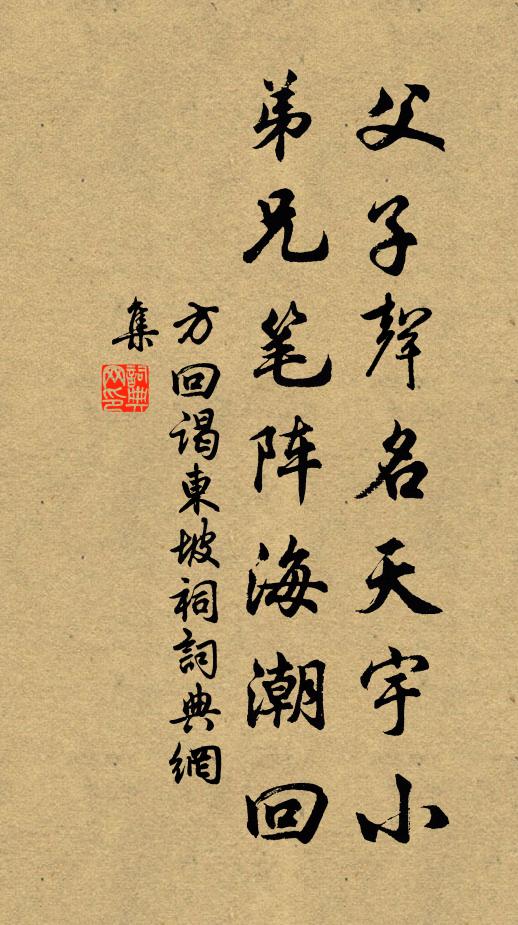 父子聲名天宇小
弟兄笔阵海潮回
方回谒東坡祠詞典網
集
詞典网印